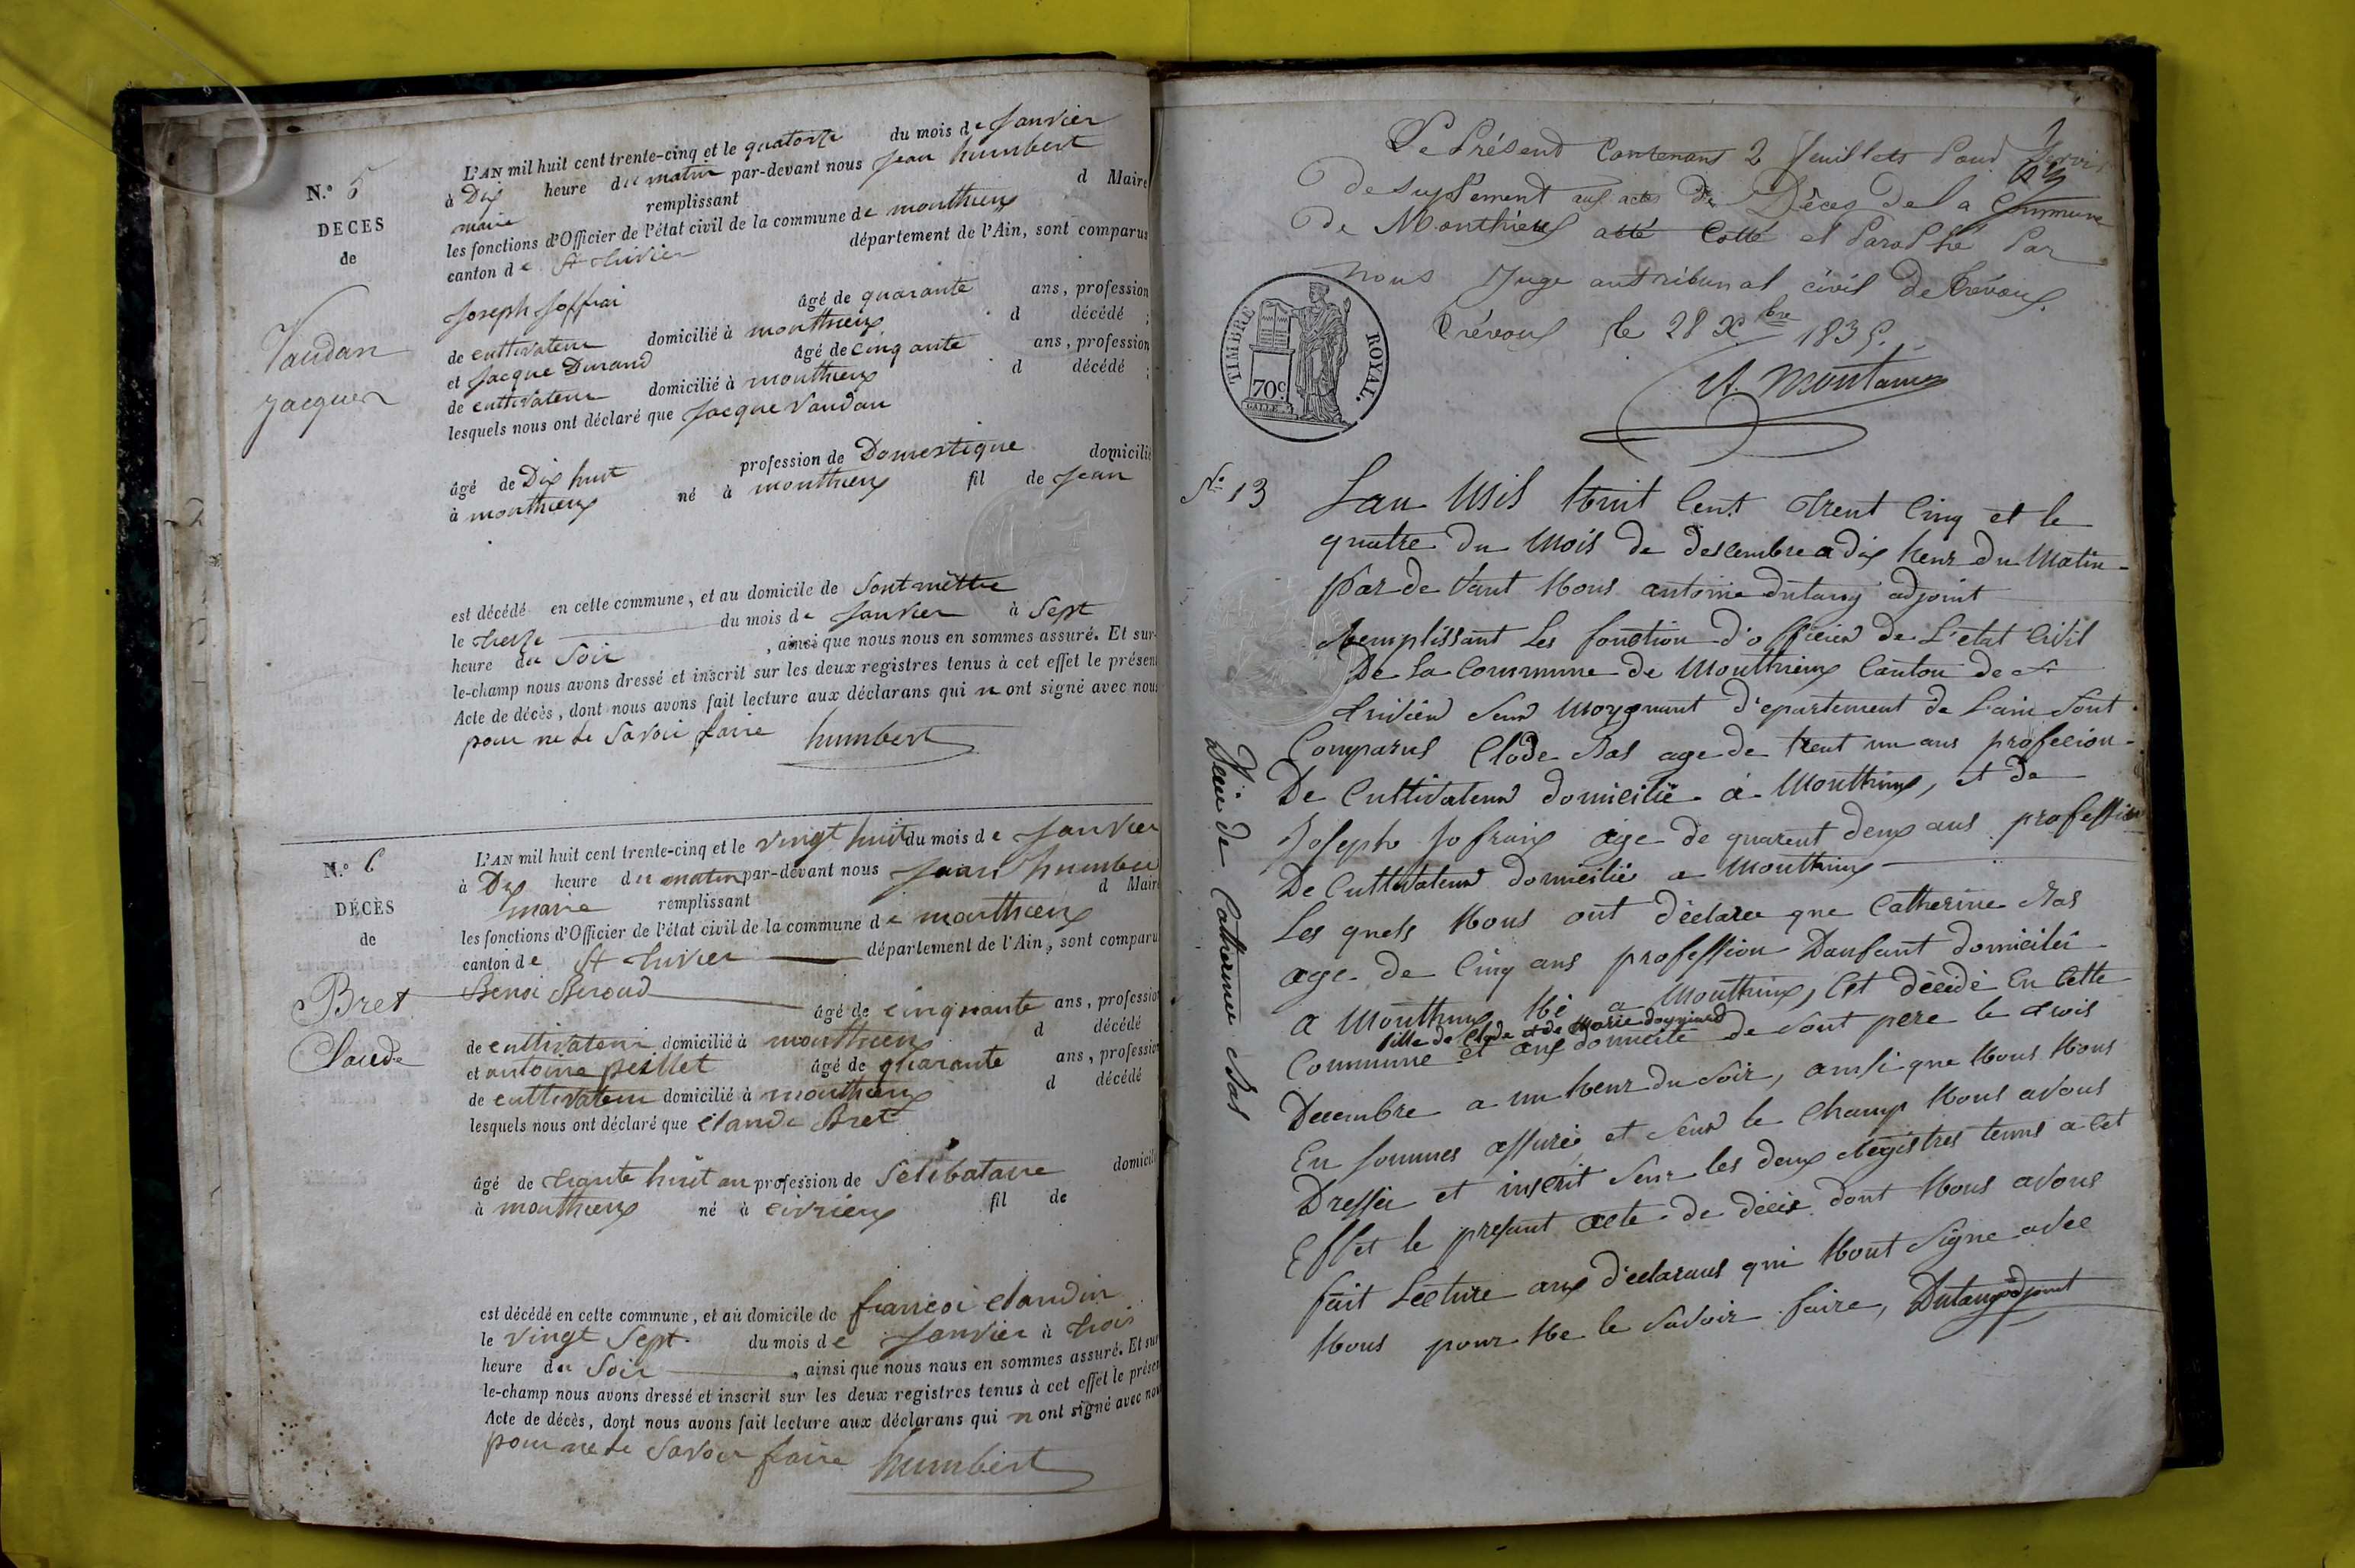 N.° 5
DECES
de
Vaudan
Jacques
L'AN mil huit cent trente-cinq et le quatorze du mois de Janvier
à Dix heure du matin par-devant nous Jean humbert
maire remplissant d Maire
les fonctions d'Officier de l'état civil de la commune de monthieux
canton de St trivier département de l'Ain, sont comparus
Joseph Joffrai âgé de quarante ans, profession
de cultivateur domicilié à monthieux d décédé ;
et Jacque Durand âgé de cinqante ans, profession
de cultivateur domicilié à monthieux d décédé ;
lesquels nous ont déclaré que Jacque Vaudan
âgé de Dix huit profession de Domestique domicilié
à monthieux né à monthieux fil de Jean
est décédé en cette commune, et au domicile de Sont mettre
le treize du mois de Janvier à Sept
heure du Soir , ainsi que nous nous en sommes assuré. Et sur-
le-champ nous avons dressé et inscrit sur les deux registres tenus à cet effet le présent
Acte de décès, dont nous avons fait lecture aux déclarans qui n ont signé avec nous
pour ne le Savoir faire humbert
N.° 6
DÉCÈS
de
Bret
Claude
L'AN mil huit cent trente-cinq et le vingt huit du mois de Janvier
à Dix heure du matin par-devant nous Jean humber
maire remplissant d Maire
les fonctions d'Officier de l'état civil de la commune de monthieux
canton de St trivier département de l'Ain, sont comparu
Benoi Beroud âgé de cinquante ans, profession
de cultivateur domicilié à monthieux d décédé
et antoine peillet âgé de quarante ans, profession
de cultivateur domicilié à monthieux d décédé
lesquels nous ont déclaré que Claude Bret
âgé de trante huit an profession de Selibataire domicili
à monthieux né à civrieux fil de
est décédé en cette commune, et au domicile de francoi claudin
le vingt Sept du mois de Janvier à trois
heure du Soir , ainsi que nous nous en sommes assuré. Et sur
le-champ nous avons dressé et inscrit sur les deux registres tenus à cet effet le présen
Acte de décès, dont nous avons fait lecture aux déclarans qui n ont signé avec nou
pour ne le Savoir faire humbert
Le Présent Contenant 2 feuillets Pour Servir
de suplement aux actes de Déces de la Commune
de Monthieux été Cotté et Paraphé Par
nous Juge au tribunal civil de trévoux.
trévoux le 28 Xbre 1835.
TIMBRE ROYAL.
70c.
N° 13
Lan Mil Huit Cent Trent Cinq et le
quatre du Mois de descembre a dix heur du Matin
Par de Vant Nous antoine dutang adjoint
Remplissant Les fonction d'officier de L'etat Civil
De La Commune de Monthieux Canton de St
trivier Seur Moygnant d'epartement de Lain Sont
Comparus Clode Ras age de trent un ans profecion
De Cultivateur domicilié a Monthieux, et de
Joseph Jofraix age de quarent deux ans profession
De Cultivateur domicilié a Monthieux
Les quels Nous ont déclaree que Catherine Ras
age de Cinq ans profession Danfant domicilié
a Monthieux Né a Monthieux, Est décédé En Cette
fille de Clode et de Marie
Commune et aux domicile de Sont pere le trois
Decembre a un heur du Soir, ainsi que Nous Nous
En sommes assuré, et Seur le Champ Nous avons
Dressée et inscrit Seur les deux Registres tenus a Cet
Effet le presant acte de décés dont Nous avons
fait Lecture aux déclarans qui Nont Signe avec
Nous pour Ne le Savoir faire, Dutang adjoint
Décé de Catherine Ras